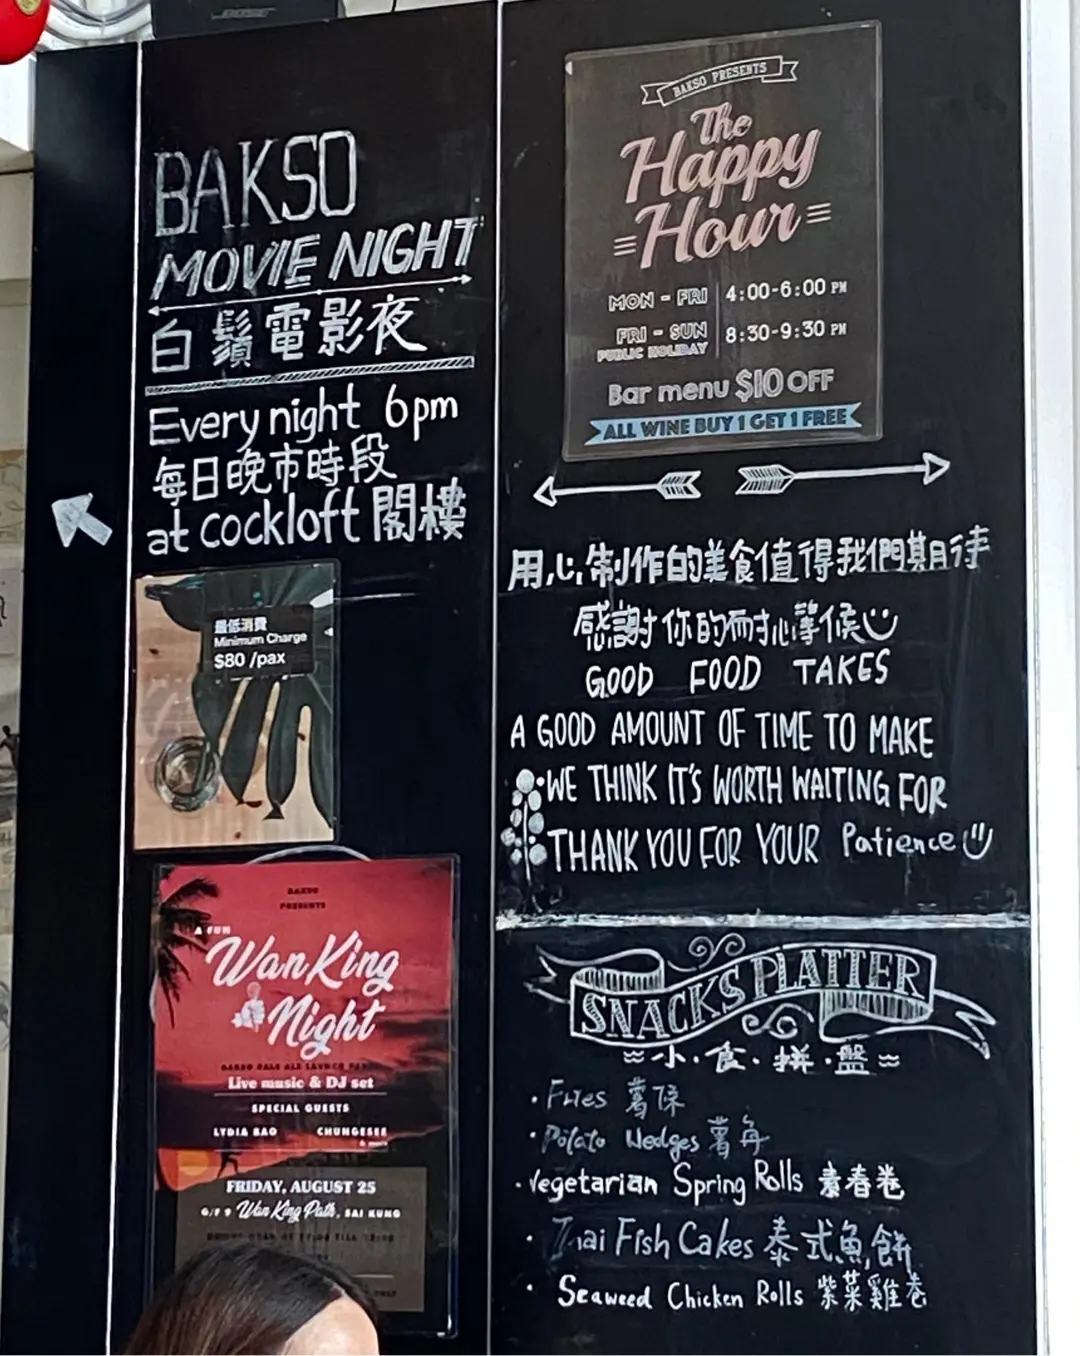 BAKSO
MOVIE NIGHT
白鬚電影夜
Every night 6pm
每日晚市時段
at cockloft 閣樓
最低消費
Minimum Charge
$80 /pax
BAKSO
PRESENTS
A FUN
Wan King
Night
BAKSO PALE ALE LAUNCH
Live music & DJ set
SPECIAL GUESTS
LYDIA BAO CHUNGESEE
FRIDAY, AUGUST 25
G/F 9 Wan King Path, SAI KUNG
BAKSO PRESENTS
The
Happy
Hour
MON - FRI 4:00-6:00 PM
FRI - SUN 8:30-9:30 PM
PUBLIC HOLIDAY
Bar menu $10 OFF
ALL WINE BUY 1 GET 1 FREE
用心制作的美食值得我們期待
感謝你的耐心等候
GOOD FOOD TAKES
A GOOD AMOUNT OF TIME TO MAKE
WE THINK IT'S WORTH WAITING FOR
THANK YOU FOR YOUR Patience
SNACKS PLATTER
小·食·拼·盤
· Fries 薯條
· Potato Wedges 薯角
· Vegetarian Spring Rolls 素春卷
· Thai Fish Cakes 泰式魚餅
· Seaweed Chicken Rolls 紫菜雞卷